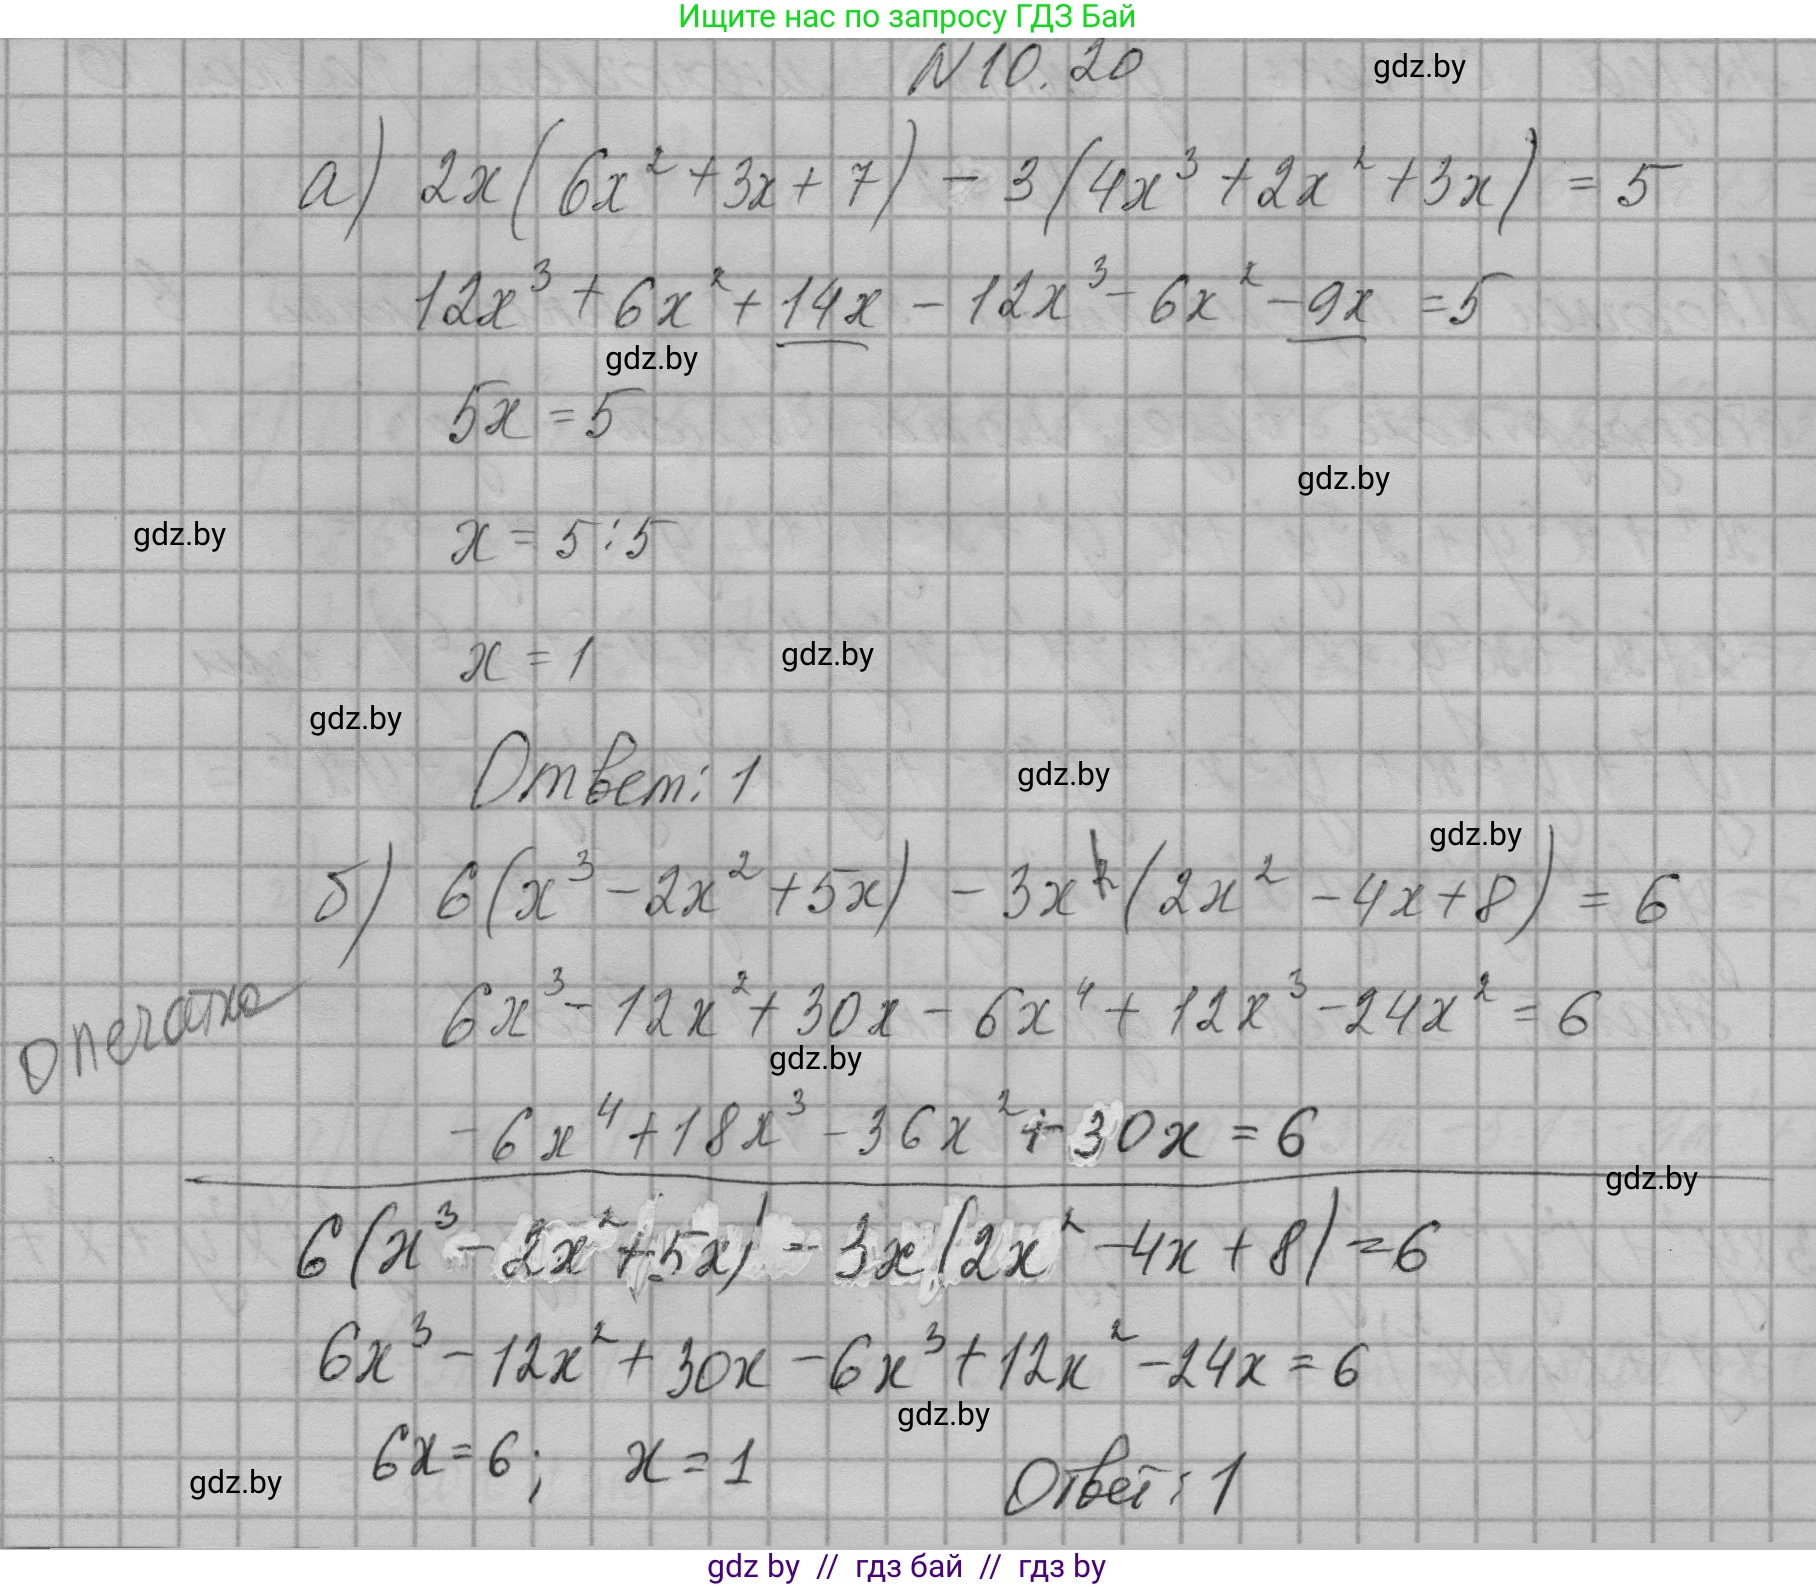 Ищите нас по запросу ГДЗ Бай
N10.20
gdz.by
а) 2x(6x² + 3x + 7) - 3(4x³ + 2x² + 3x) = 5
12x³ + 6x² + 14x - 12x³ - 6x² - 9x = 5
gdz.by
5x = 5
gdz.by
gdz.by
x = 5 : 5
x = 1
gdz.by
gdz.by
Ответ: 1
gdz.by
gdz.by
б) 6(x³ - 2x² + 5x) - 3x²(2x² - 4x + 8) = 6
опечатка
6x³ - 12x² + 30x - 6x⁴ + 12x³ - 24x² = 6
gdz.by
-6x⁴ + 18x³ - 36x² + 30x = 6
gdz.by
6(x³ - 2x² + 5x) - 3x(2x² - 4x + 8) = 6
6x³ - 12x² + 30x - 6x³ + 12x² - 24x = 6
gdz.by
6x = 6; x = 1 Ответ: 1
gdz.by
gdz by // гдз бай // гдз by